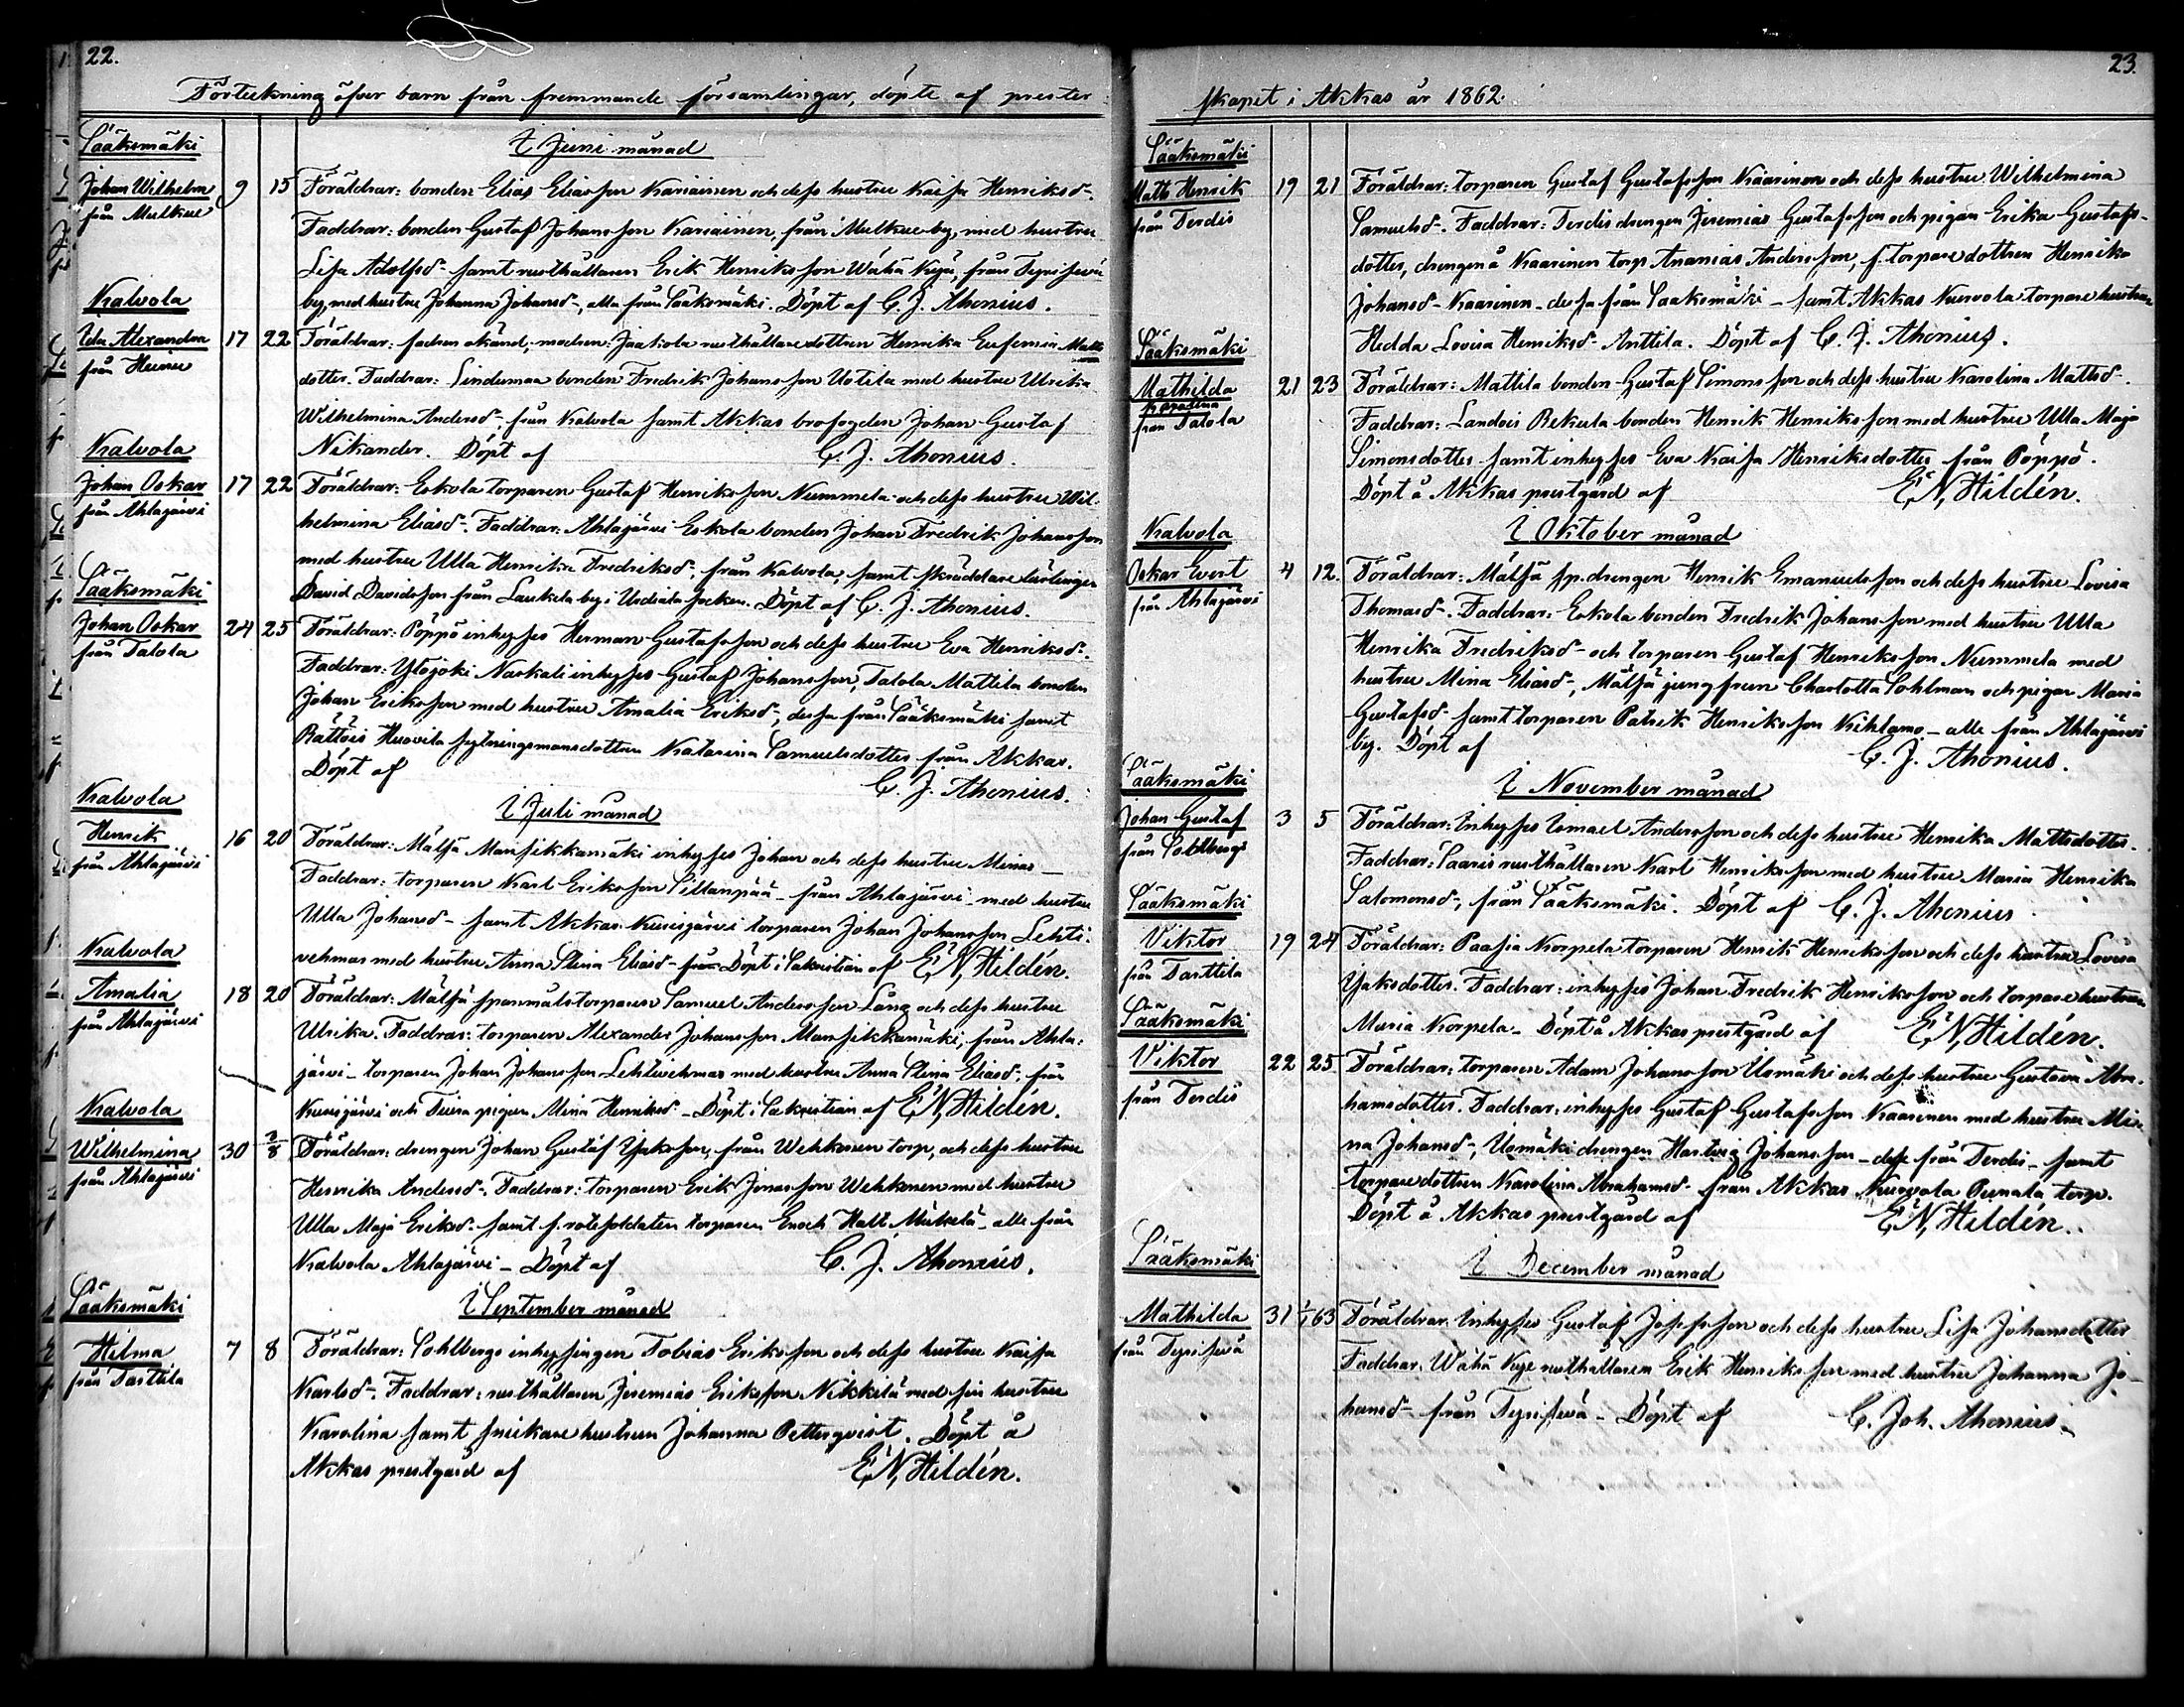 22.
Förteckning öfver barn från fremmande församlingar, döpte af prester
Sääksmäki
I Juni månad
Johan Wilhelm 9 15 Föräldrar: bonden Elias Eliasson Kariainen och dess hustru Kaisa Henriksd-
från Mulkue Faddrar: bonden Gustaf Johansson Kariainen, från Mulkue by, med hustru
Lisa Adolfsd- samt rusthållaren Erik Henriksson Wähä Kyyä, från Tyrisewä
by, med hustru Johanna Johansd-, alla från Sääksmäki. Döpt af C. J. Ahonius.
Kalvola
Ida Alexandra 17 22 Föräldrar: fadren okänd, modren: Jaakola rusthållaredottren Henrika Eufemia Matts
från Heinu dotter. Faddrar: Lindumaa bonden Fredrik Johansson Uotila med hustru Ulrika
Wilhelmina Andersd-, från Kalvola samt Akkas brofogden Johan Gustaf
Nikander. Döpt af C. J. Ahonius.
Kalvola
Johan Oskar 17 22 Föräldrar: Eskola torparen Gustaf Henriksson Nummela och dess hustru Wil-
från Ahlajärvi helmina Eliasd-. Faddrar: Ahlajärvi Eskola bonden Johan Fredrik Johansson
med hustru Ulla Henrika Fredriksd-, från Kalvola, samt skräddare lärlingen
David Davidsson från Laukela by i Urdiala socken. Döpt af C. J. Ahonius.
Sääksmäki
Johan Oskar 24 25 Föräldrar: Pöppö inhyses Herman Gustafsson och dess hustru Eva Henriksd-.
från Talola Faddrar: Ylöjöki Naskali inhyses Gustaf Johansson, Talola Mattila bonden
Johan Eriksson med hustru Amalia Eriksd-, dessa från Sääksmäki samt
Rättöis Huovila sytningsmansdottren Katarina Samuelsdotter från Akkas.
Döpt af C. J. Ahonius.
I Juli månad
Kalvola
Henrik 16 20 Föräldrar: Mälsä Mansikkamäki inhyses Johan och dess hustru Minas
från Ahlajärvi Faddrar: torparen Karl Eriksson Sillanpää - från Ahlajärvi - med hustru
Ulla Johansd- samt Akkas Kurisjärvi torparen Johan Johansson Lehti-
vehmas med hustru Anna Stina Eliasd- från Döpt i Sakristian af E N, Hildén.
Kalvola
Amalia 18 20 Föräldrar: Mälsä spannmålstorparen Samuel Andersson Lång och dess hustru
från Ahlajärvi Ulrika. Faddrar: torparen Alexander Johansson Mansikkamäki, från Ahla-
järvi - torparen Johan Johansson Lehtivehmas med hustru Anna Stina Eliasd- från
Kurisjärvi och pigan Mina Henriksd - Döpt i Sakristian af E N, Hildén.
Kalvola
Wilhelmina 30 3/8 Föräldrar: drengen Johan Gustaf Isaksson, från Wehkonen torp, och dess hustru
från Ahlajärvi Henrika Andersd-. Faddrar: torparen Erik Jonasson Wehkonen med hustru
Ulla Maja Eriksd- samt f. rotesoldaten torparen Enoch Hatt Mickelä - alle från
Kalvola Ahlajärvi - Döpt af C. J. Ahonius.
I September månad
Sääksmäki
Hilma 7 8 Föräldrar: Sohlbergs inhysingen Tobias Eriksson och dess hustru Kaisa
från Tarttila Karlsd-. Faddrar: rusthållaren Jeremias Eriksson Nikkilä med sin hustru
Karolina samt snickare hustrun Johanna Petterqvist. Döpt å
Akkas prestgård af E N, Hildén.
23.
skapet i Akkas år 1862.
Sääksmäki
Matts Henrik 19 21 Föräldrar: torparen Gustaf Gustafsson Kaarinen och dess hustru Wilhelmina
från Terdis Samuelsd-. Faddrar: Terdis drengen Jeremias Gustafsson och pigan Erika Gustafs-
dotter, drengen å Kaarinen torp Ananias Andersson, f. torparedottren Henrika
Johansd- Kaarinen - dessa från Sääksmäki - samt Akkas Kurvola torpare hustrun
Hedda Lovisa Henriksd- Anttila. Döpt af C. J. Ahonius.
Sääksmäki
Mathilda 21 23 Föräldrar: Mattila bonden Gustaf Simonsson och dess hustru Karolina Mattsd-.
Karolina
från Talola Faddrar: Landois Rekula bonden Henrik Henriksson med hustru Ulla Maja
Simonsdotter samt inhyses Eva Kaisa Henriksdotter från Pöppö.
Döpt å Akkas prestgård af E N, Hildén.
I Oktober månad
Kalvola
Oskar Evert 4 12. Föräldrar: Mälsä sp. drengen Henrik Emanuelsson och dess hustru Lovisa
från Ahlajärvi Thomasd-. Faddrar: Eskola bonden Fredrik Johansson med hustru Ulla
Henrika Fredriksd- och torparen Gustaf Henriksson Nummela med
hustru Mina Eliasd-, Mälsä jungfrun Charlotta Sohlman och pigan Maria
Gustafsd- samt torparen Patrik Henriksson Kihlamo - alle från Ahlajärvi
by. Döpt af C. J. Ahonius.
I November månad
Sääksmäki
Johan Gustaf 3 5 Föräldrar: Inhyses Ismael Andersson och dess hustru Henrika Mattsdotter.
från Sohlbergs Faddrar: Saaris rusthållaren Karl Henriksson med hustru Maria Henrika
Salomonsd-, från Sääksmäki. Döpt af C. J. Ahonius
Sääksmäki
Viktor 19 24 Föräldrar: Paasia Korpela torparen Henrik Henriksson och dess hustru Lovisa
från Tarttila Isaksdotter. Faddrar: inhyses Johan Fredrik Henriksson och torpare hustrun
Maria Korpela - Döpt å Akkas prestgård af E N, Hildén.
Sääksmäki
Viktor 22 25 Föräldrar: torparen Adam Johansson Uomäki och dess hustru Gustava Abra-
från Terdis hamsdotter. Faddrar: inhyses Gustaf Gustafsson Kaarinen med hustru Mi-
na Johansd-, Uomäki drengen Hartvig Johansson - desse från Terdis - samt
torparedottren Karolina Abrahamsd- från Akkas Kurvola Punala torp.
Döpt å Akkas prestgård af E N, Hildén.
I December månad
Sääksmäki
Mathilda 31 1/1 63 Föräldrar: Inhyses Gustaf Josefsson och dess hustru Lisa Johansdotter
från Tyrisevä Faddrar: Wähä Kyyä rusthållaren Erik Henriksson med hustru Johanna Jo-
hansd- från Tyrisewä - Döpt af C. Joh. Ahonius.